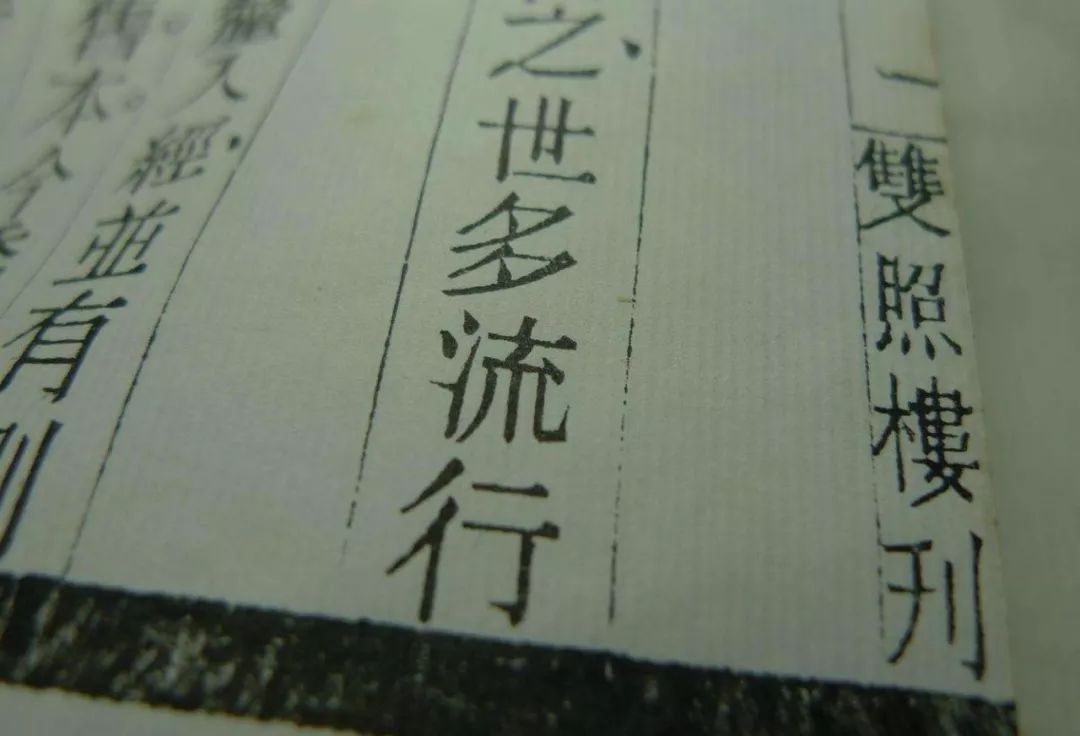 二
雙照樓刊
之、世多流行
入經、並有刊
舊本。今